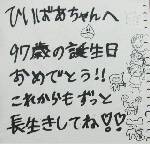 ひいばあちゃんへ
97歳の誕生日
おめでとう!!
これからもずっと
長生きしてね♡♡